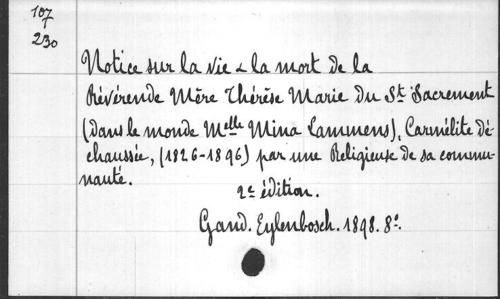 107
1
230
Notice sur la vie & la mort de la
Révérende Mère Thérèse Marie du St Sacrement
(dans le monde Melle Mina Lammens), Carmélite dé
chaussée, (1826-1896) par une Religieuse de sa commu-
nauté.
2e édition.
Gand. Eylenbosch. 1898. 8º.